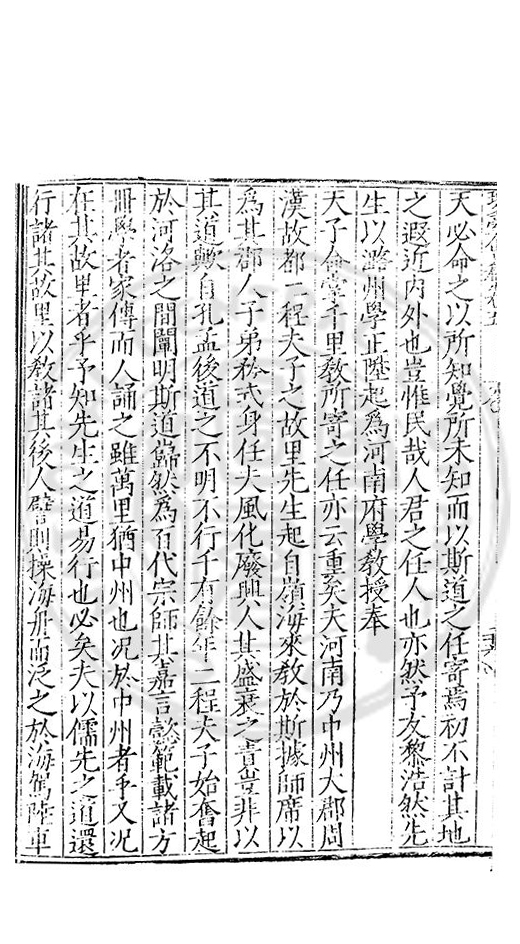 天必命之以所知覺所未知而以斯道之任寄焉初不計其地
之遐近內外也豈惟民哉人君之任人也亦然予友黎浩然先
生以潞州學正陞起爲河南府學教授奉
天子命掌千里教所寄之任亦云重矣夫河南乃中州大郡周
漢故都二程夫子之故里先生起自嶺海來教於斯據師席以
爲其郡人子弟矜式身任夫風化廢興人其盛衰之責豈非以
其道歟自孔孟後道之不明不行千有餘年二程夫子始奮起
於河洛之間闡明斯道巋然爲百代宗師其嘉言懿範載諸方
冊學者家傳而人誦之雖萬里猶中州也况於中州者乎又况
在其故里者乎予知先生之道易行也必矣夫以儒先之道還
行諸其故里以敎諸其後人譬則操海舟而泛之於海駕陸車